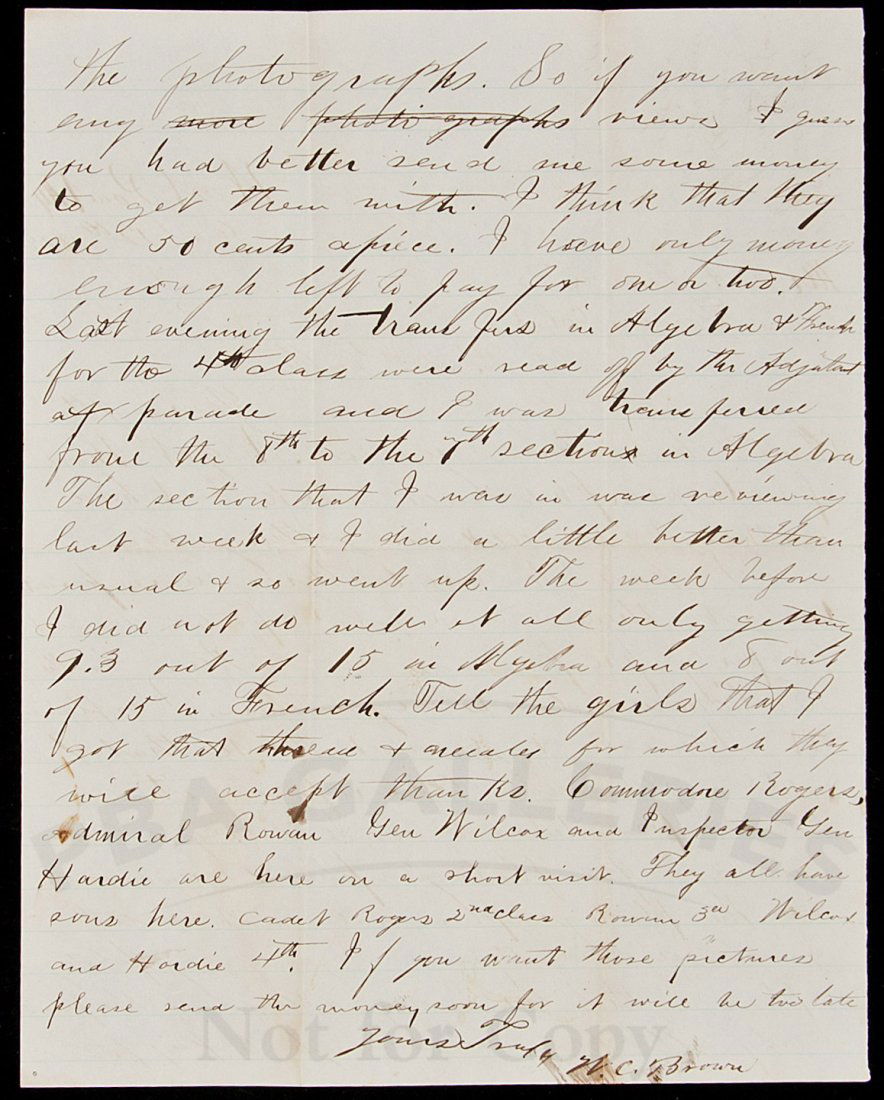 the photographs. So if you want
any more photographs views I guess
you had better send me some money
to get them with. I think that they
are 50 cents apiece. I have only money
enough left to pay for one or two.
Last evening the transfers in Algebra & French
for the 4th class were read off by the Adjutant
at parade and I was transferred
from the 8th to the 7th section in Algebra
The section that I was in was reviewing
last week & I did a little better than
usual & so went up. The week before
I did not do well at all only getting
9.3 out of 15 in Algebra and 8 out
of 15 in French. Tell the girls that I
got that thread & needles for which they
will accept thanks. Commodore Rogers,
Admiral Rowan Gen Wilcox and Inspector Gen
Hardie are here on a short visit. They all have
sons here. Cadet Rogers 2nd class Rowan 3d Wilcox
and Hardie 4th. If you want those pictures
please send the money soon for it will be too late
Yours Truly
W. C. Brown
PBA GALLERIES
Not for Copy